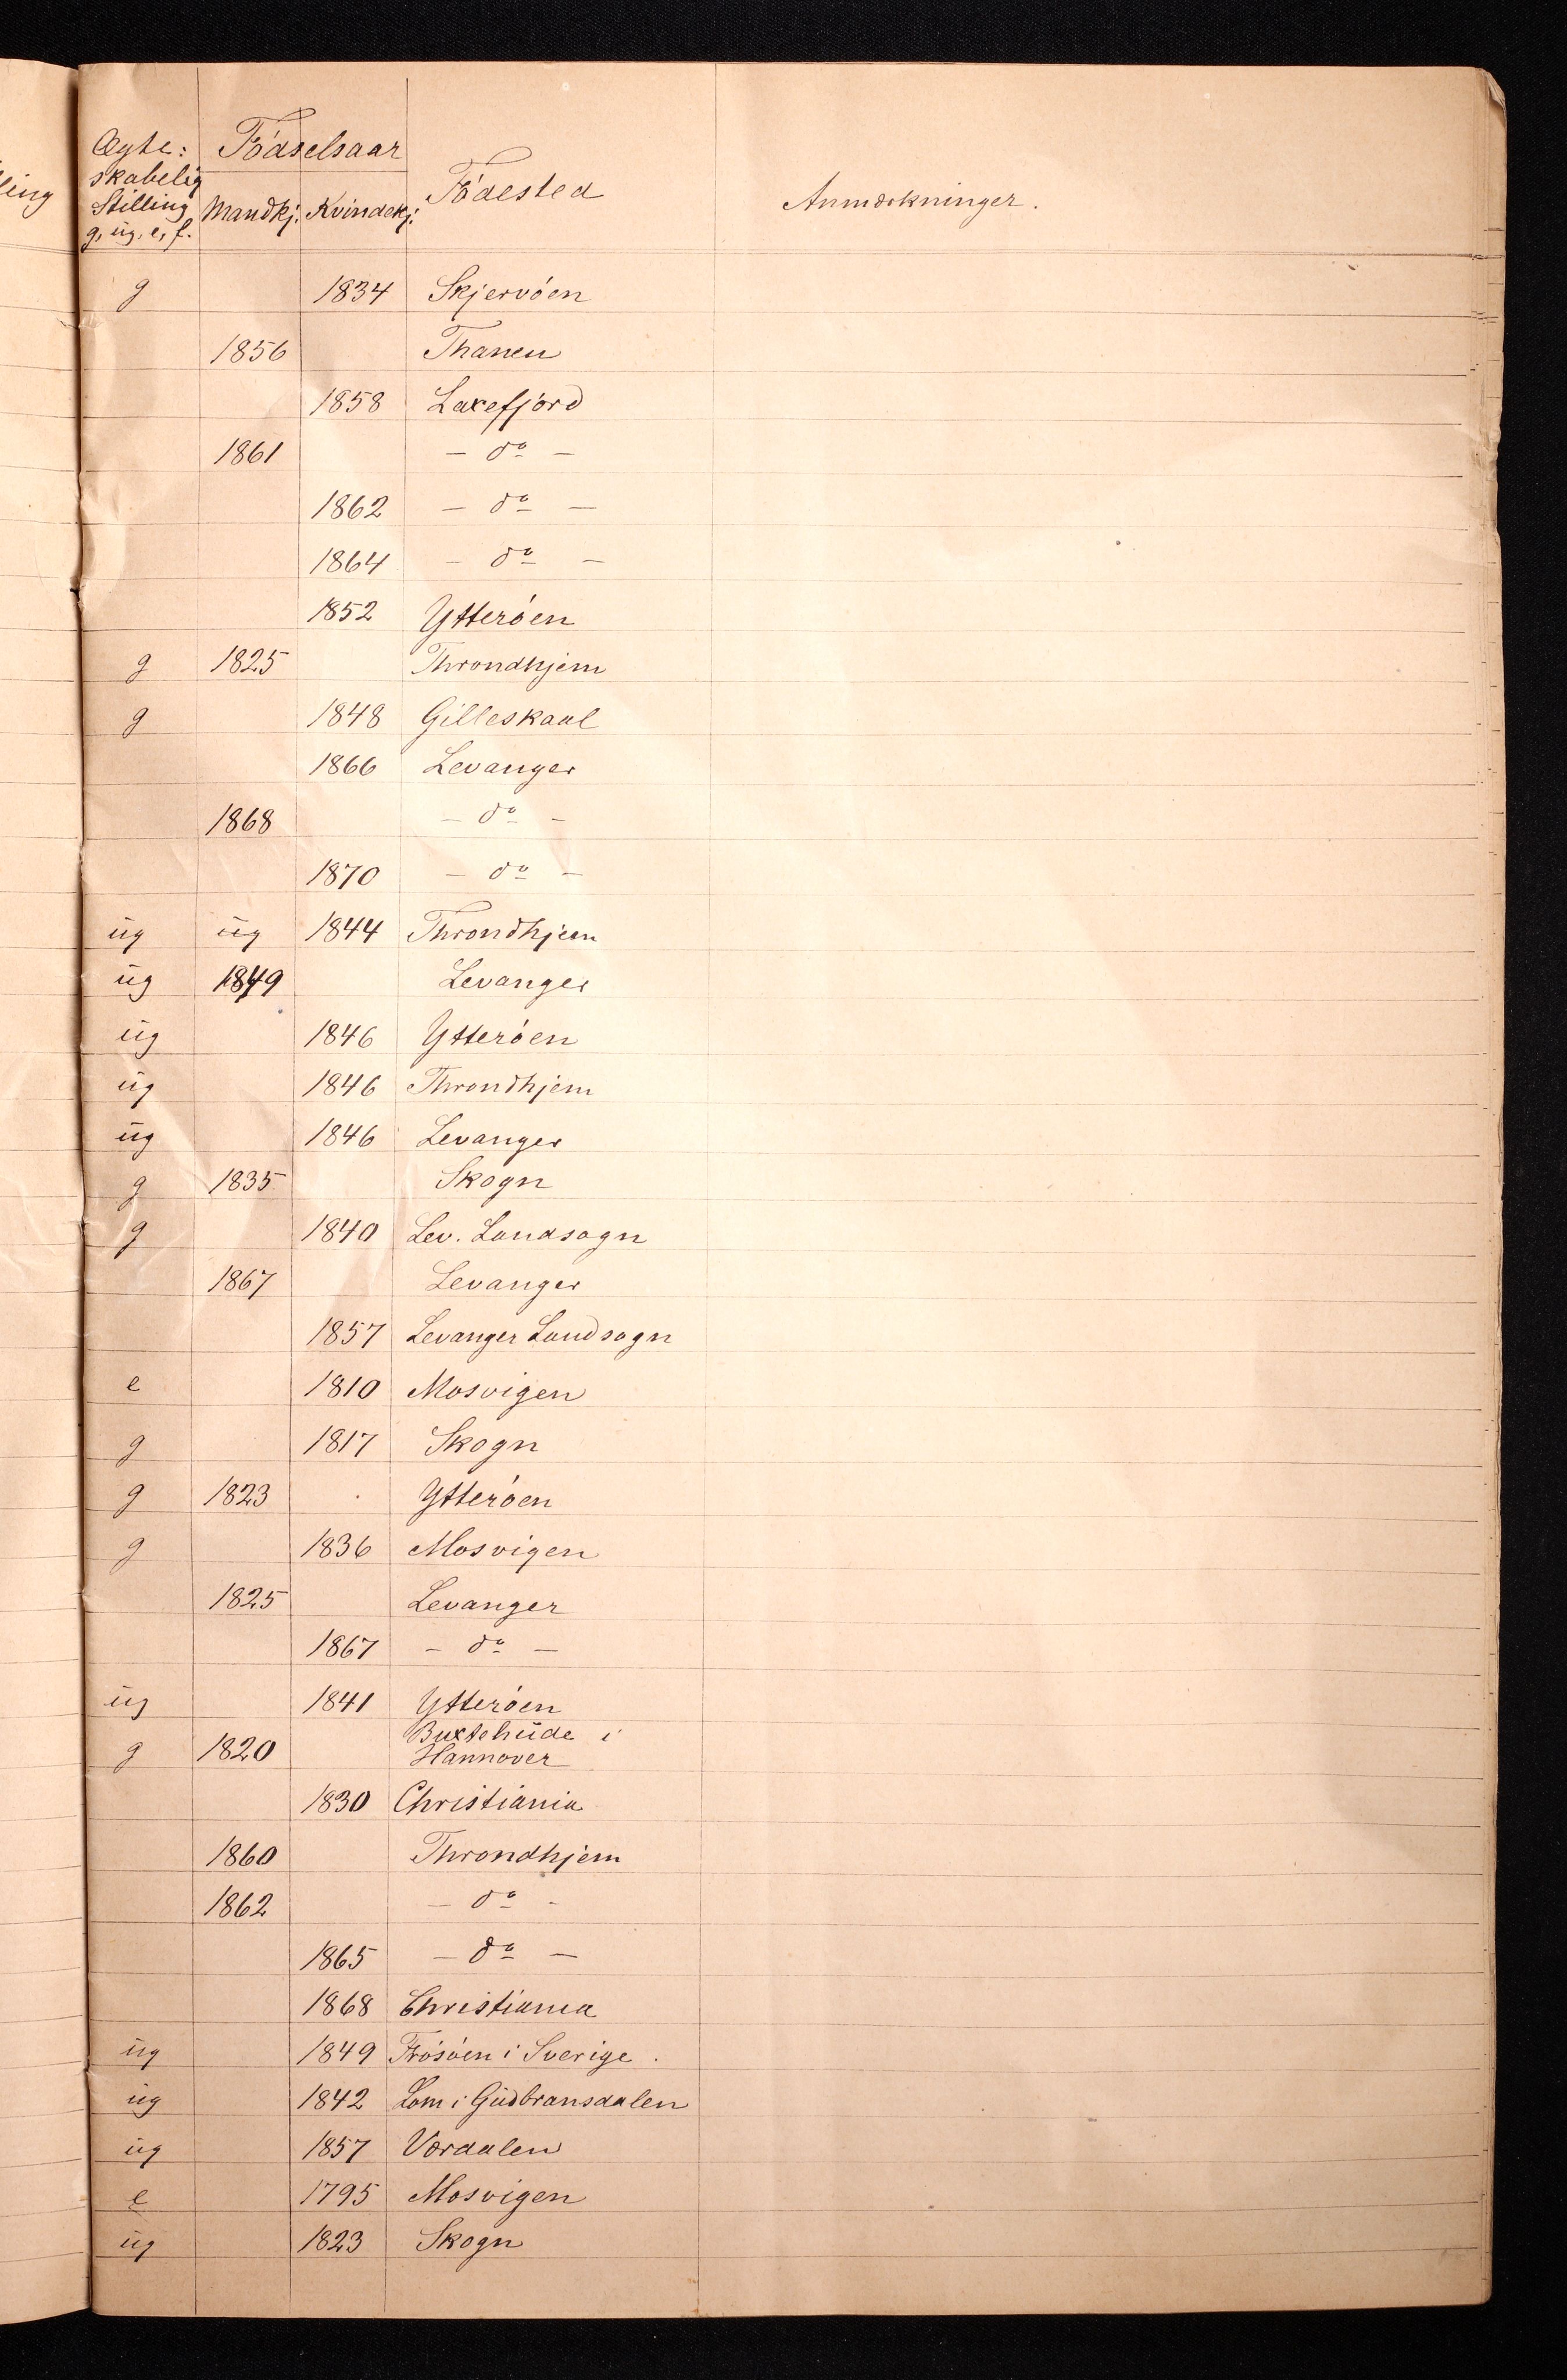 Ægte:
skabelig
Stilling
g, ug, e, f.
Födselsaar
Mandkj. Kvindekj:
Födested
Anmærkninger.
g 1834 Skjervöen
1856 Thanen
1858 Laxefjord
1861 - do -
1862 - do -
1864 - do -
1852 Ytteröen
g 1825 Throndhjem
g 1848 Gilleskaal
1866 Levanger
1868 - do -
1870 - do -
ug ug 1844 Throndhjem
ug 1849 Levanger
ug 1846 Ytteröen
ug 1846 Throndhjem
ug 1846 Levanger
g 1835 Skogn
g 1840 Lev. Landsogn
1867 Levanger
1857 Levanger Landsogn
e 1810 Mosvigen
g 1817 Skogn
g 1823 Ytteröen
g 1836 Mosvigen
1825 Levanger
1867 - do -
ug 1841 Ytteröen
g 1820 Buxtehude i
Hannover
1830 Christiania
1860 Throndhjem
1862 - do -
1865 - do -
1868 Christiania
ug 1849 Frösöen i Sverige.
ug 1842 Lom i Gudbransdalen
ug 1857 Værdalen
e 1795 Mosvigen
ug 1823 Skogn